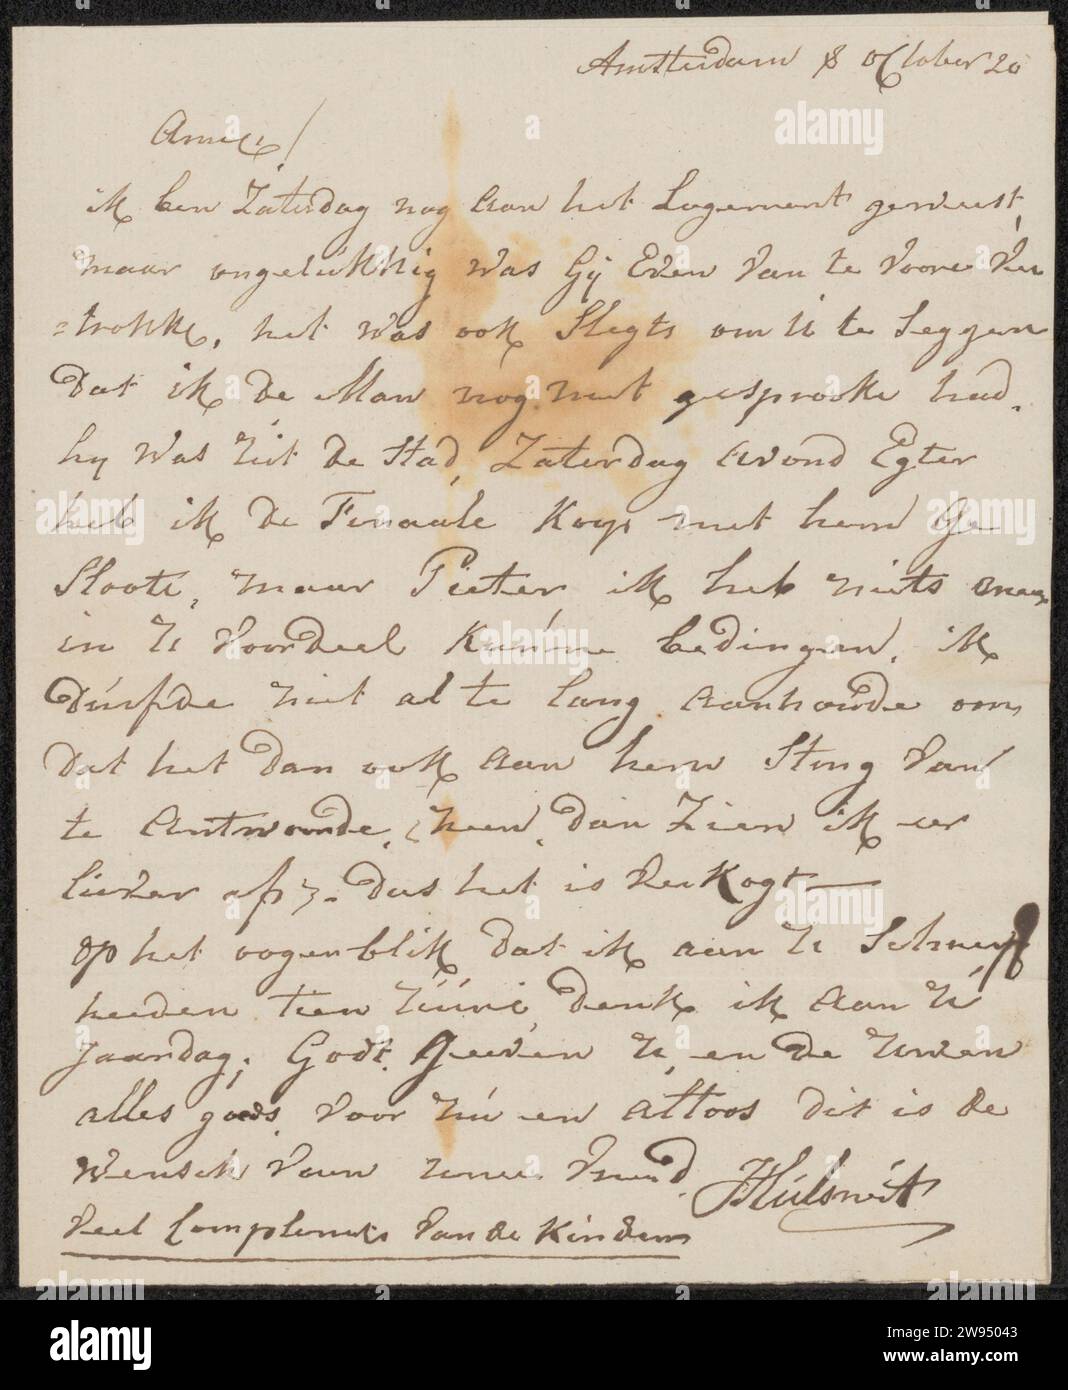 Amsterdam 8 October 20
Amice!
ik ben Zaterdag nog aan het Logement geweest,
maar ongelukkig was Gij Even van te voore ver
=trokke, het was ook Slegts om U te Seggen
Dat ik de Man nog niet gesprooke had.
hij was uit de Stad, Zaterdag avond Egter
heb ik de Finaale Koop met hem Ge
Sloote, maar Pieter ik heb niets meer
in U voordeel Kunne bedingen, ik
durfde niet al te lang aanhoude om
dat het dan ook aan hem Stong van
te Antwoorde, neen, dan Zien ik er
liever af, Dus het is verkogt
op het oogenblik dat ik aan U Schreijf
heeden tien uure, denk ik aan U
Jaardag; Godt Geeven U en de uwen
alles goeds voor nu en altoos dit is de
wensch van uwe vriend
JHulswit
veel Complements van de Kindern
alamy
Image ID: 2W95043
www.alamy.com